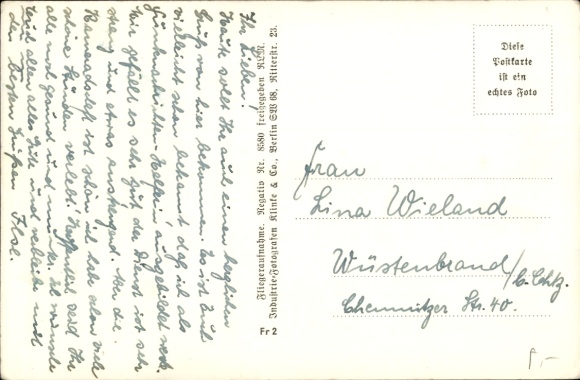 Ihr Lieben!
Heute sollt Ihr auch einen herzlichen
Gruß von hier bekommen. Es ist Euch
vielleicht schon bekannt, daß ich als
Funknachrichten-Helferin ausgebildet werde.
Mir gefällt es sehr gut der Dienst ist sehr
streng und etwas anstrengend. Aber die
Kameradschaft ist schön. Ich habe schon viele
schöne Stunden verlebt. Hoffentlich seid Ihr
alle noch gesund und munter. Ich wünsche
Euch allen alles Gute und verbleibe mit
den besten Grüßen Ilse.
Fliegeraufnahme. Negativ Nr. 8580 freigegeben RLM.
Industrie-Fotografen Klinke & Co., Berlin SW 68, Ritterstr. 23.
Fr 2
Diese
Postkarte
ist ein
echtes Foto
Frau
Lina Wieland
Wüstenbrand/b. Chtz.
Chemnitzer Str. 40.